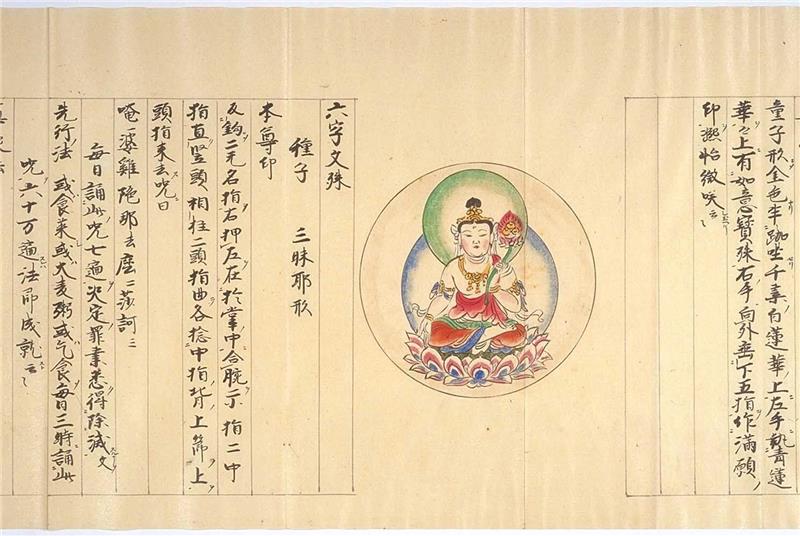 童子形金色半跏坐千葉白蓮華上左手執青蓮
華々上有如意寶珠右手向外垂下五指作滿願
印熙怡微咲云々
六字文殊
種子 三昧耶形
本尊印
反鉤二无名指右押左在於掌中合腕二小指二中
指直竪頭相拄二頭指曲各捻中指背上節上
頭指来去呪曰
唵婆雞陁那去麼二莎訶三
每日誦此呪七遍必定罪業悉得除滅文
先行法 或食菜或大麦粥或乞食每日三時誦此
呪六十万遍法即成就云々